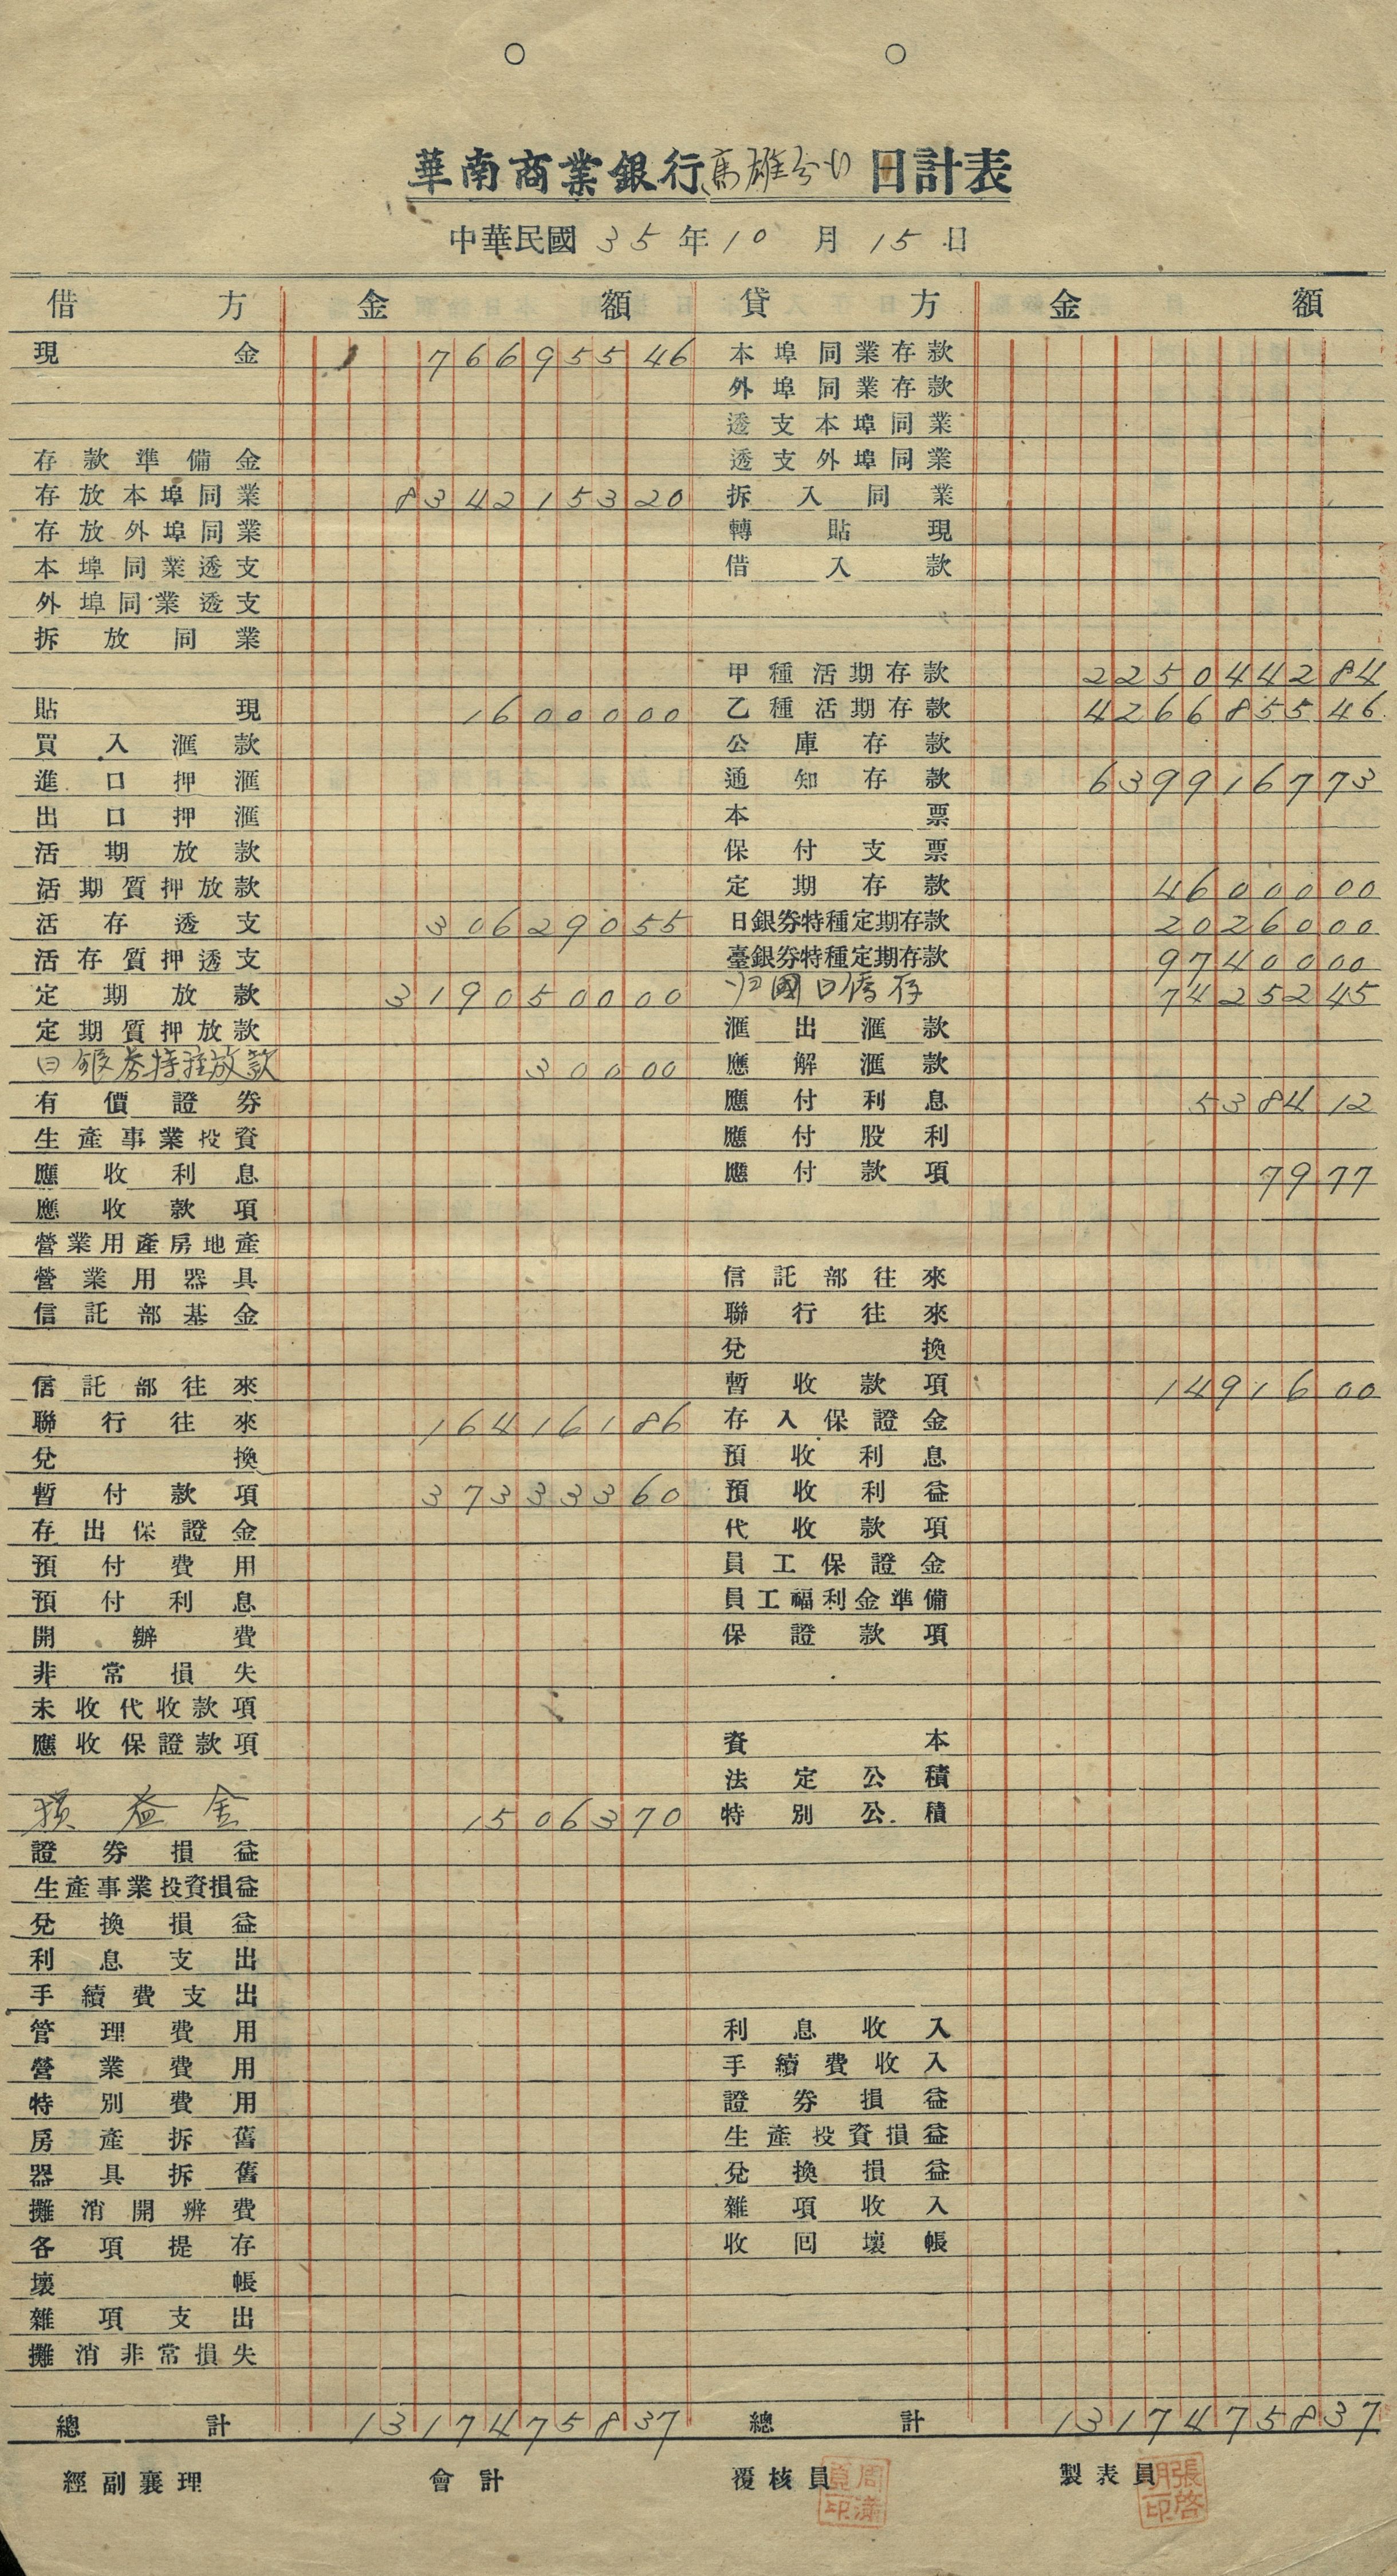 華南商業銀行高雄分行日計表
中華民國 35 年 10 月 15 日
借方 金額 貸方 金額
現金 766955 46 本埠同業存款
外埠同業存款
透支本埠同業
存款準備金 透支外埠同業
存放本埠同業 8342153 20 拆入同業
存放外埠同業 轉貼現
本埠同業透支 借入款
外埠同業透支
拆放同業
甲種活期存款 2250442 84
貼現 16000 00 乙種活期存款 4266855 46
買入滙款 公庫存款
進口押滙 通知存款 6399167 73
出口押滙 本票
活期放款 保付支票
活期質押放款 定期存款 46000 00
活存透支 306290 55 日銀券特種定期存款 20260 00
活存質押透支 臺銀券特種定期存款 97400 00
定期放款 3190500 00 归國日僑存 74252 45
定期質押放款 滙出滙款
日銀券特種放款 300 00 應解滙款
有價證券 應付利息 5384 12
生產事業投資 應付股利
應收利息 應付款項 79 77
應收款項
營業用產房地產
營業用器具 信託部往來
信託部基金 聯行往來
兌換
信託部往來 暫收款項 14916 00
聯行往來 164161 86 存入保證金
兌換 預收利息
暫付款項 373333 60 預收利益
存出保證金 代收款項
預付費用 員工保證金
預付利息 員工福利金準備
開辦費 保證款項
非常損失
未收代收款項
應收保證款項 資本
法定公積
損益金 15063 70 特別公積
證券損益
生產事業投資損益
兌換損益
利息支出
手續費支出
管理費用 利息收入
營業費用 手續費收入
特別費用 證券損益
房產拆舊 生產投資損益
器具拆舊 兌換損益
攤消開辦費 雜項收入
各項提存 收回壞帳
壞帳
雜項支出
攤消非常損失
總計 13174758 37 總計 13174758 37
經副襄理 會計 覆核員 製表員
張啓明印